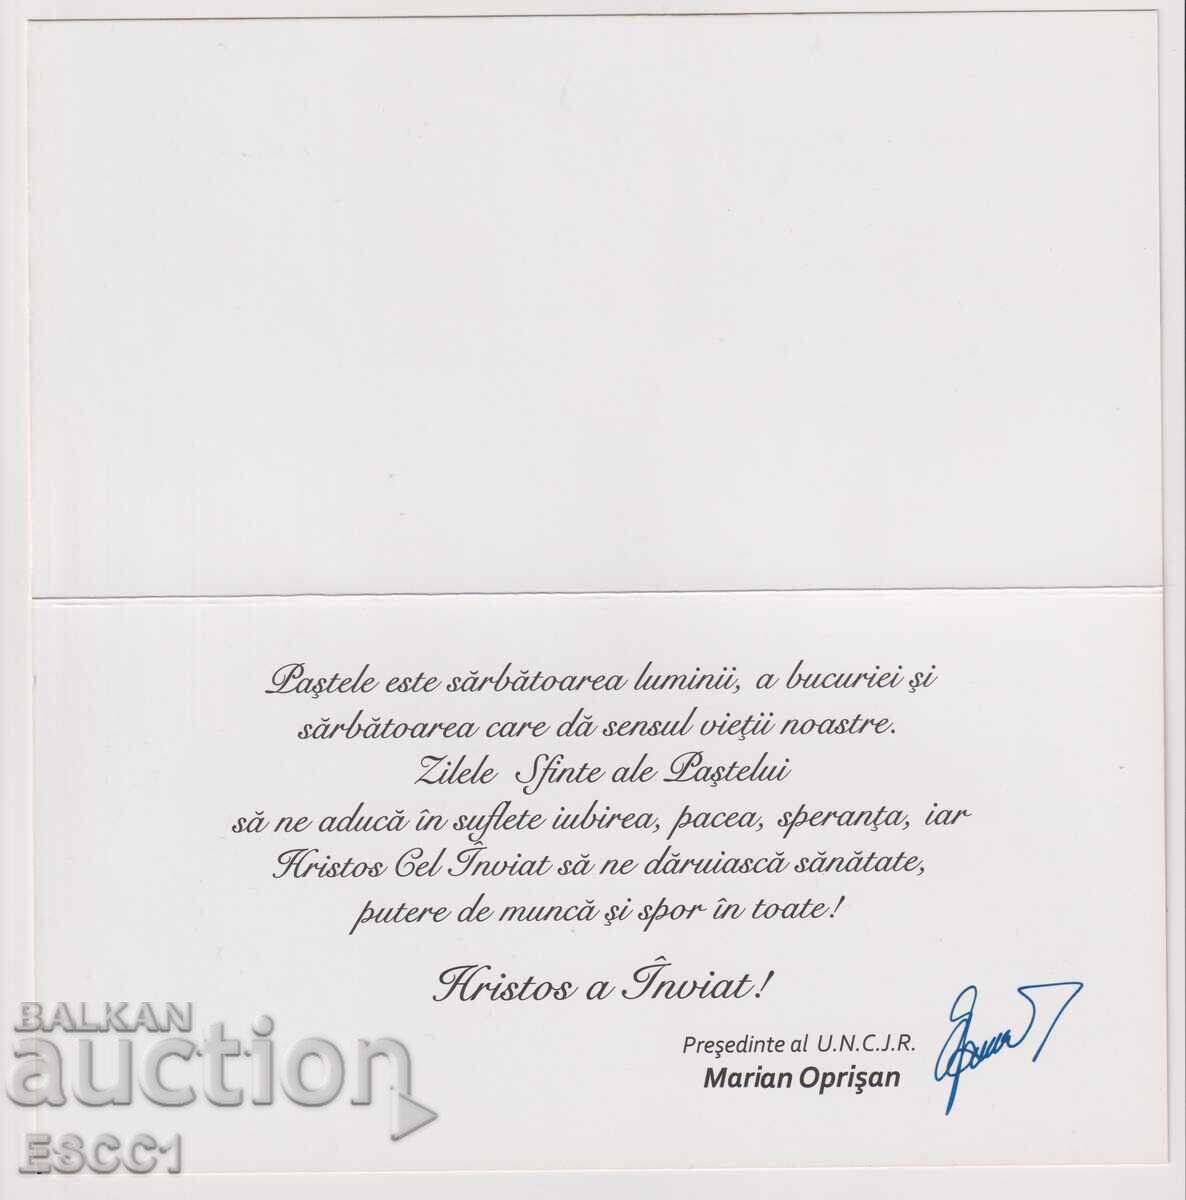 Paştele este sărbătoarea luminii, a bucuriei şi
sărbătoarea care dă sensul vieţii noastre.
Zilele Sfinte ale Paştelui
să ne aducă în suflete iubirea, pacea, speranţa, iar
Hristos Cel Înviat să ne dăruiască sănătate,
putere de muncă şi spor în toate!
Hristos a Înviat!
Preşedinte al U.N.C.J.R.
Marian Oprişan
BALKAN
auction
ESCC1